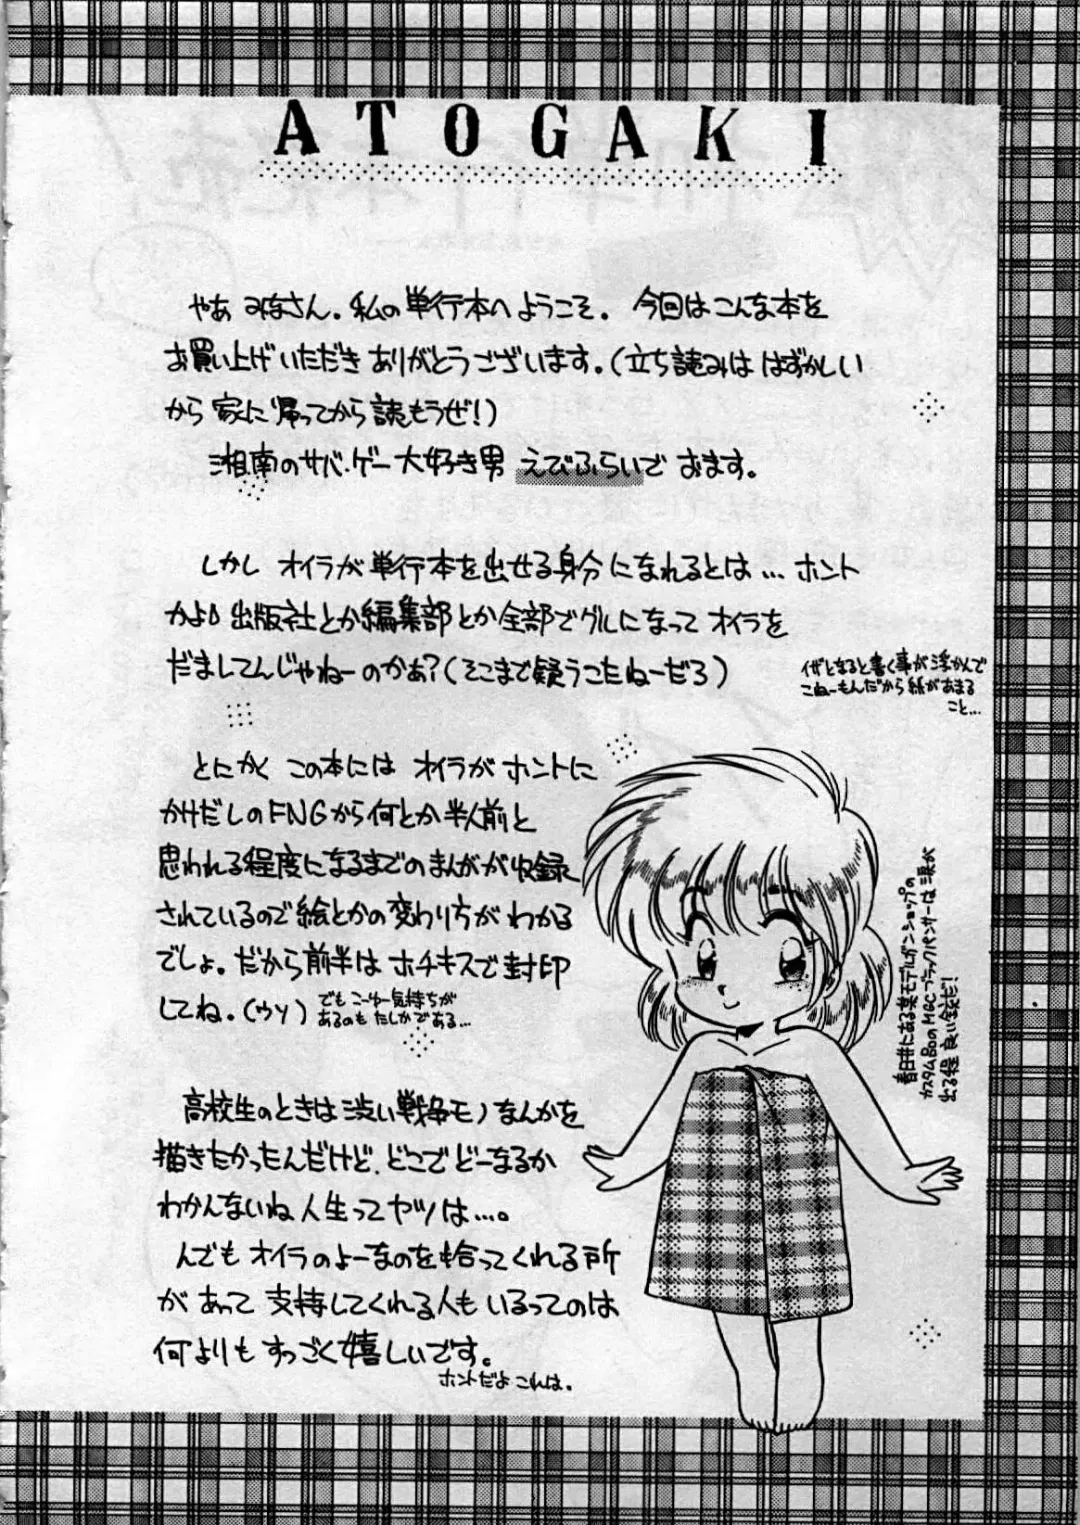 ATOGAKI
やあ みなさん。私の単行本へようこそ。今回はこんな本を
お買い上げいただきありがとうございます。(立ち読みは はずかしい
から 家に帰ってから読もうぜ!)
湘南のサバ・ゲー大好き男 えびふらいでおます。
しかし オイラが単行本を出せる身分になれるとは… ホント
かよ 出版社とか編集部とか全部でグルになって オイラを
だましてんじゃねーのかぁ?(そこまで疑うこたねーだろ)
イザとなると書く事が浮かんで
こねーもんだから紙があまる
こと…
とにかく この本には オイラが ホントに
かけだしのFNGから何とか半人前と
思われる程度になるまでのまんがが収録
されているので絵とかの変わり方が わかる
でしょ。だから前半は ホチキスで封印
してね。(ウソ)
でも こーゆー気持ちが
あるのも たしかである…
高校生のときは渋い戦争モノなんかを
描きたかったんだけど、どこでどーなるか
わかんないね人生ってヤツは…。
んでも オイラのよーなのを拾ってくれる所
が あって 支持してくれる人も いるってのは
何よりも すっごく嬉しいです。
ホントだよ これは。
春日井にある某モデルガンショップの
カスタムBOのMGCブラックパンサーは涙が
出る程 良い銃だ!